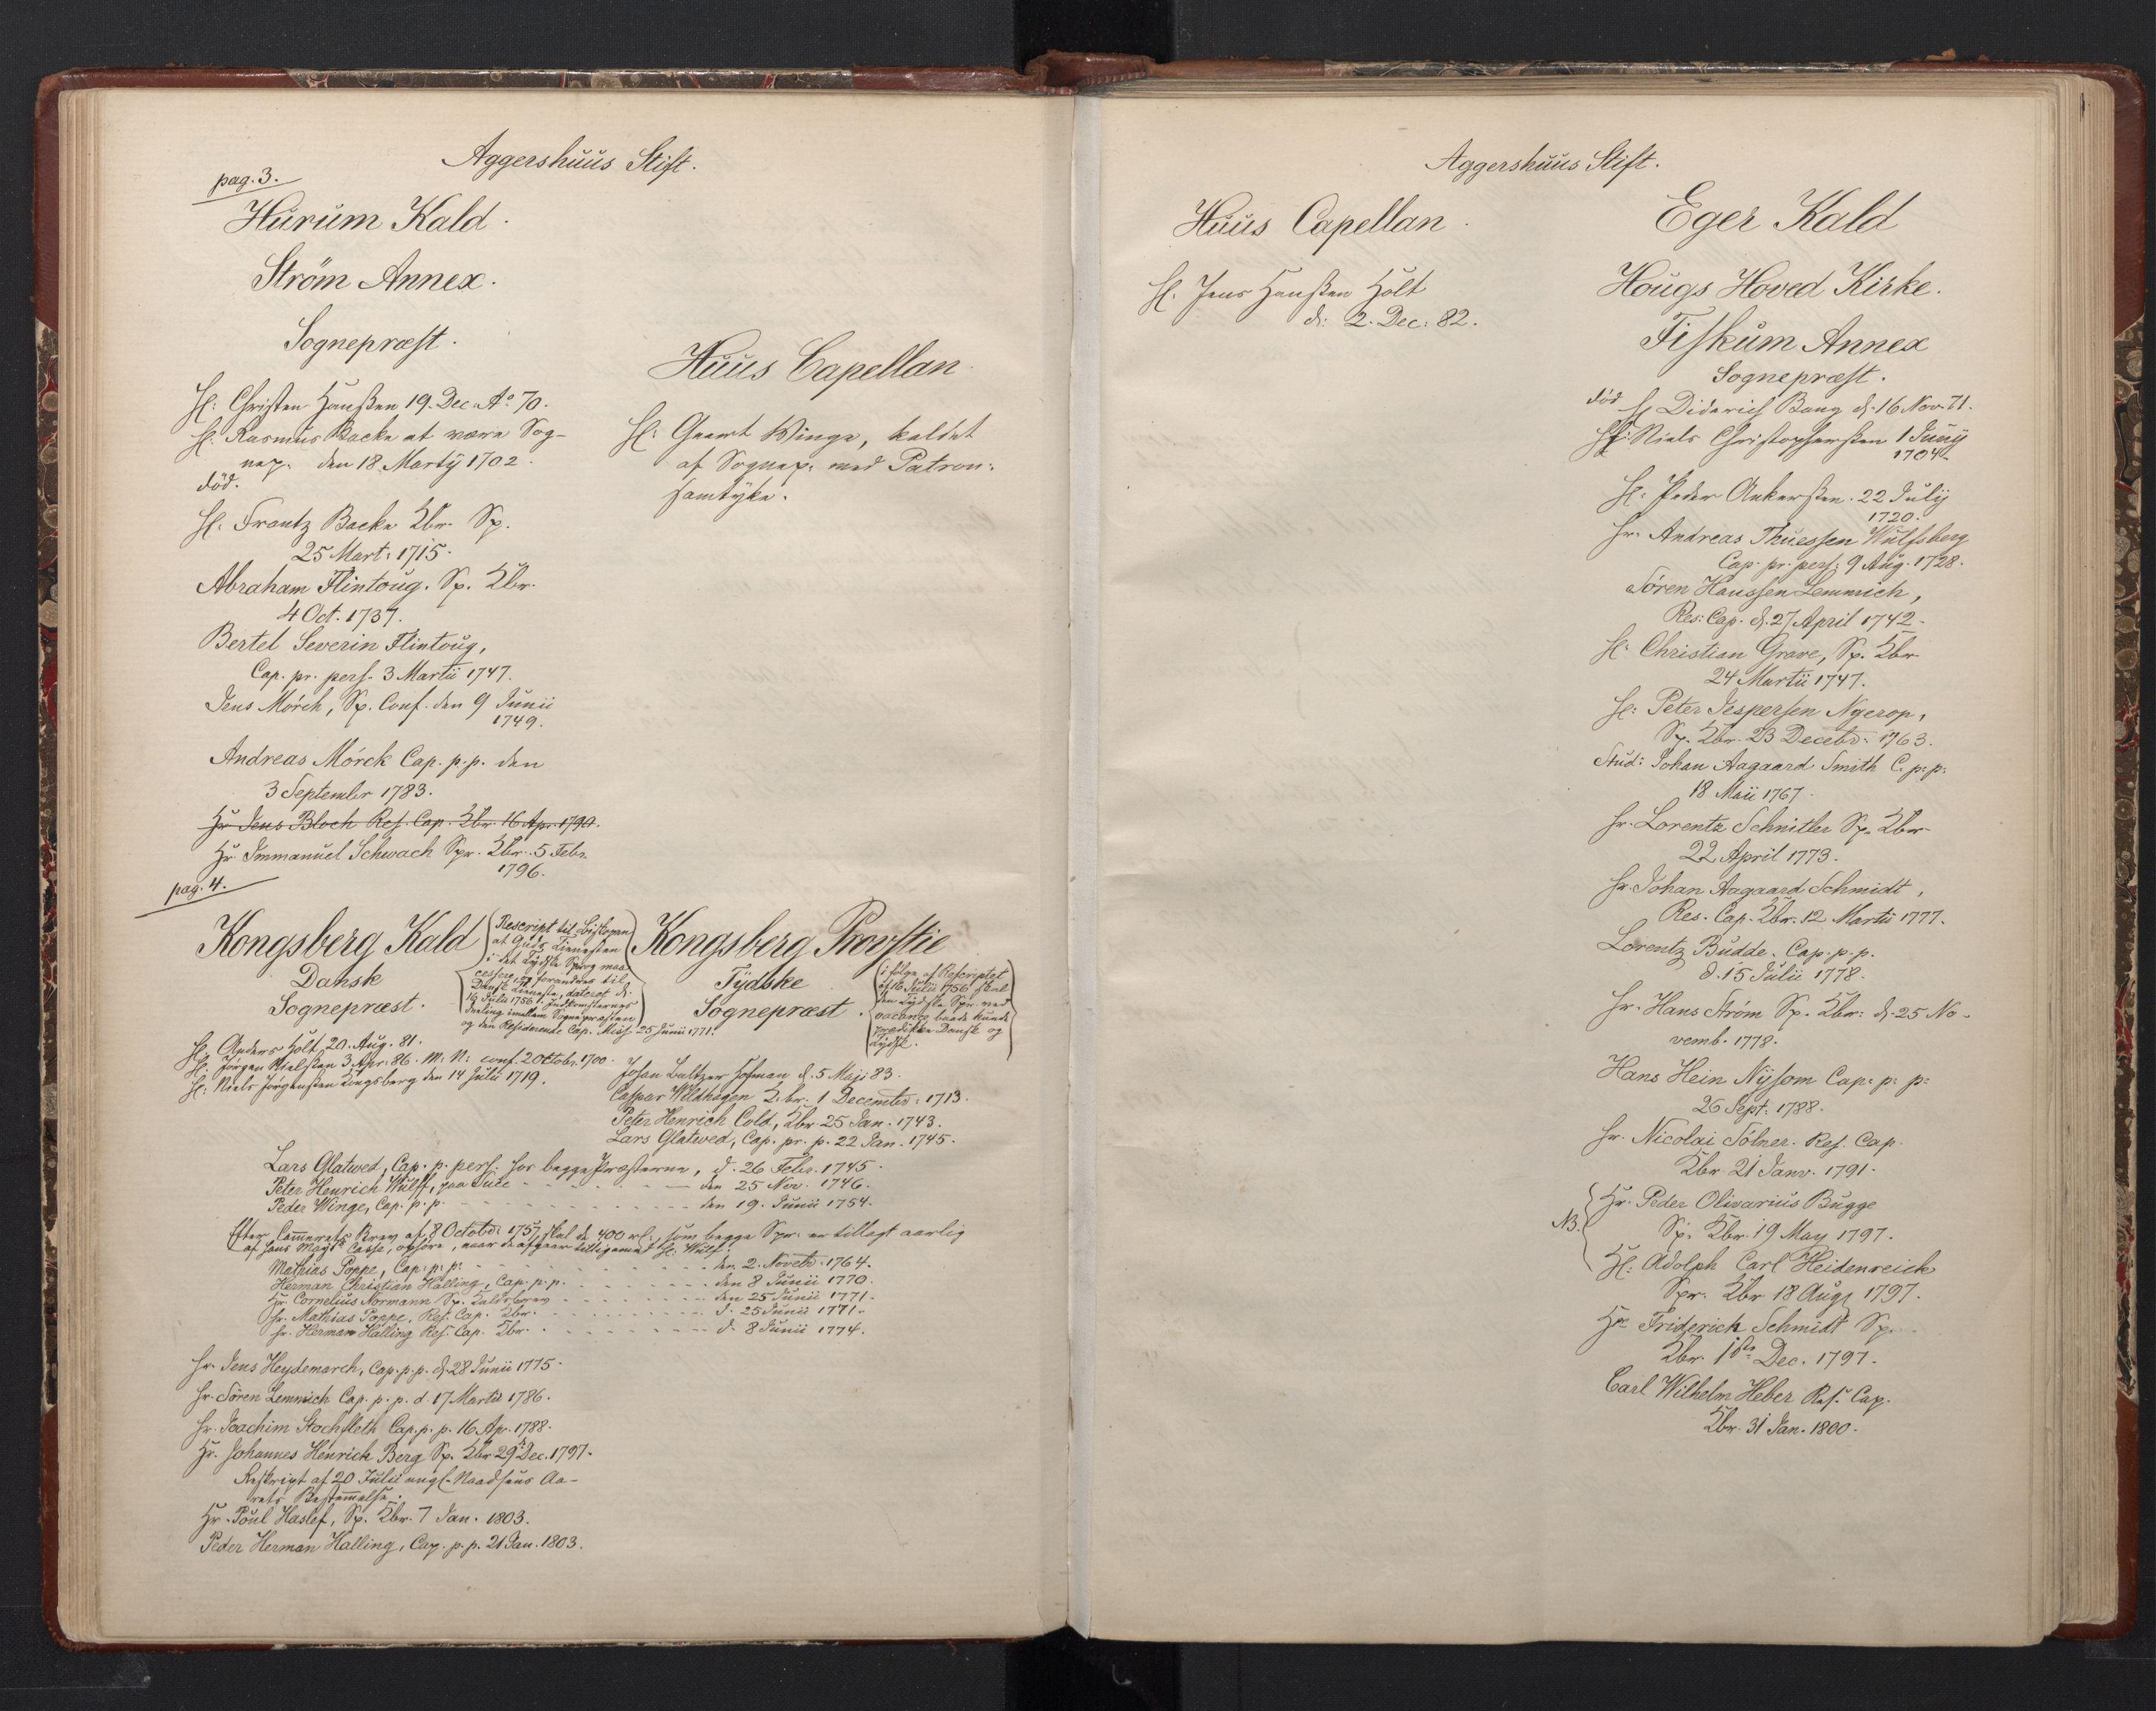 Aggershuus Stift.
pag. 3.
Hurum Kald.
Strøm Annex.
Sognepræst.
H: Christen Hanßen 19. Dec. Ao. 70.
H. Rasmus Backe at være Sog-
nep. den 18 Martij 1702.
død.
H. Frantz Backe Kbr. Sp.
25 Mart: 1715.
Abraham Flintoug. Sp. Kbr.
4 Oct. 1737.
Bertel Severin Flintoug,
Cap. pr. pers. 3 Martii 1747.
Jens Mörch, Sp. Conf. den 9 Junii
1749.
Andreas Mörck Cap. p. p. den
3 September 1783.
Hr Jens Bloch Res. Cap. Kbr. 16 Apr. 1790.
Hr. Immanuel Schwach Spr. Kbr. 5 Febr.
1796.
Huus Capellan
H: Geert Winge, kaldet
af Sognep: med Patron:
samtyke.
pag. 4.
Kongsberg Kald
Dansk
Sognepræst.
Rescript til Biskopen
at Guds Tienesten
i det Tydske Sprog maa
cessere og forandres til
Dansk Tieneste, dateret d.
16 Julii 1756. Indkomsternes
deeling imellem Sognepræsten
og den Residerende Cap. Miss. 25 Junii 1771.
Kongsberg Provstie
Tydske
Sognepræst.
i følge af Rescriptet
af 16 Julii 1756 skal
den Tydske Spr. ved
vacance baade kunde
prædikke Dansk og
Tydsk.
H. Anders Holt, 20. Aug. 81.
H. Jörgen Nielßen 3 Apr. 86. M. N: conf. 20 Octobr. 1700.
H: Niels Jörgenßen Kongsberg den 14 Julii 1719.
Johan Baltzer Hofman d. 5 Maji 83.
Caspar Wildhagen K. br. 1 Decembr: 1713.
Peter Henrich Cold, Kbr 25 Jan. 1743.
Lars Glatved, Cap. pr. p. 22 Jan. 1745.
Lars Glatved, Cap. p. pers. hos begge Præsterne, d. 26 Febr. 1745.
Peter Henrich Wulff, paa den 25 Nov. 1746.
Peder Winge, Cap. p. p. den 19. Junii 1754.
Efter Cammerets Brev af 8 Octobr: 1757, skal de 400 rd., som begge Spr: er tillagt aarlig
af Hans Mayts Casse, ophöre, naar de afgaaer tilligemed H: Wulf.
Mathias Poppe, Cap: p: p: den 2. Novebr. 1764.
Herman Christian Halling, Cap. p. p. den 8 Junii 1770.
Hr. Cornelius Normann Sp. Kaldsbrev den 25 Junii 1771.
Hr. Mathias Poppe, Res. Cap. Kbr. d. 25 Junii 1771.
Hr. Herman Halling Res. Cap. Kbr. d. 8 Junii 1774.
Hr. Jens Heydemarch, Cap. p. p. d. 28 Junii 1775.
Hr. Sören Lemmich Cap. p. p. d. 17 Martii 1786.
Hr. Joachim Stochfleth Cap. p. p. 16 Ap. 1788.
Hr. Johannes Henrich Berg Sp. Kbr 29 Dec. 1797.
Reskript af 20 Julii ang. Naadsens Aa-
rets Bestemelse.
Hr. Poul Haslef, Sp. Kbr. 7 Jan. 1803.
Peder Herman Halling, Cap. p. p. 21 Jan. 1803.
Aggershuus Stift.
Huus Capellan.
H. Jens Hanßen Holt
d: 2. Dec: 82.
Eger Kald
Hougs Hoved Kirke.
Fiskum Annex
Sognepræst.
død H. Diderich Bang d. 16 Nov. 71.
H: Niels Christopherßen 1 Junij
1704
H: Peder Ankerßen. 22 Julij
1720.
Hr. Andreas Thuessen Wulfsberg
Cap. pr. pers: 9 Aug. 1728.
Sören Hanssen Lemmich,
Res: Cap. d. 27 April 1742.
H. Christian Grave, Sp. Kbr
24 Martii 1747.
H: Peter Jespersen Nyerop,
Sp. Kbr. 23 Decebr. 1763.
Stud: Johan Aagaard Smith C. p: p:
18 Maii 1767.
Hr. Lorentz Schnitler Sp. Kbr
22 April 1773.
Hr. Johan Aagaard Schmidt,
Res. Cap. Kbr. 12 Martii 1777.
Lorentz Budde. Cap. p. p.
d. 15 Julii 1778.
Hr. Hans Ström Sp. Kbr: d. 25 No-
vemb. 1778.
Hans Hein Nysom Cap: p: p:
26 Sept: 1788.
Hr. Nicolai Sölner. Res. Cap.
Kbr. 21 Janv. 1791.
Hr. Peder Olivarius Bugge
NB. Sp. Kbr. 19 May 1797.
H: Adolph Carl Heidenreich
Spr. Kbr 18 Aug. 1797.
Hr Friderich Schmidt Sp.
Kbr. 1ste Dec. 1797.
Carl Wilhelm Heber Res. Cap.
Kbr. 31 Jan. 1800.